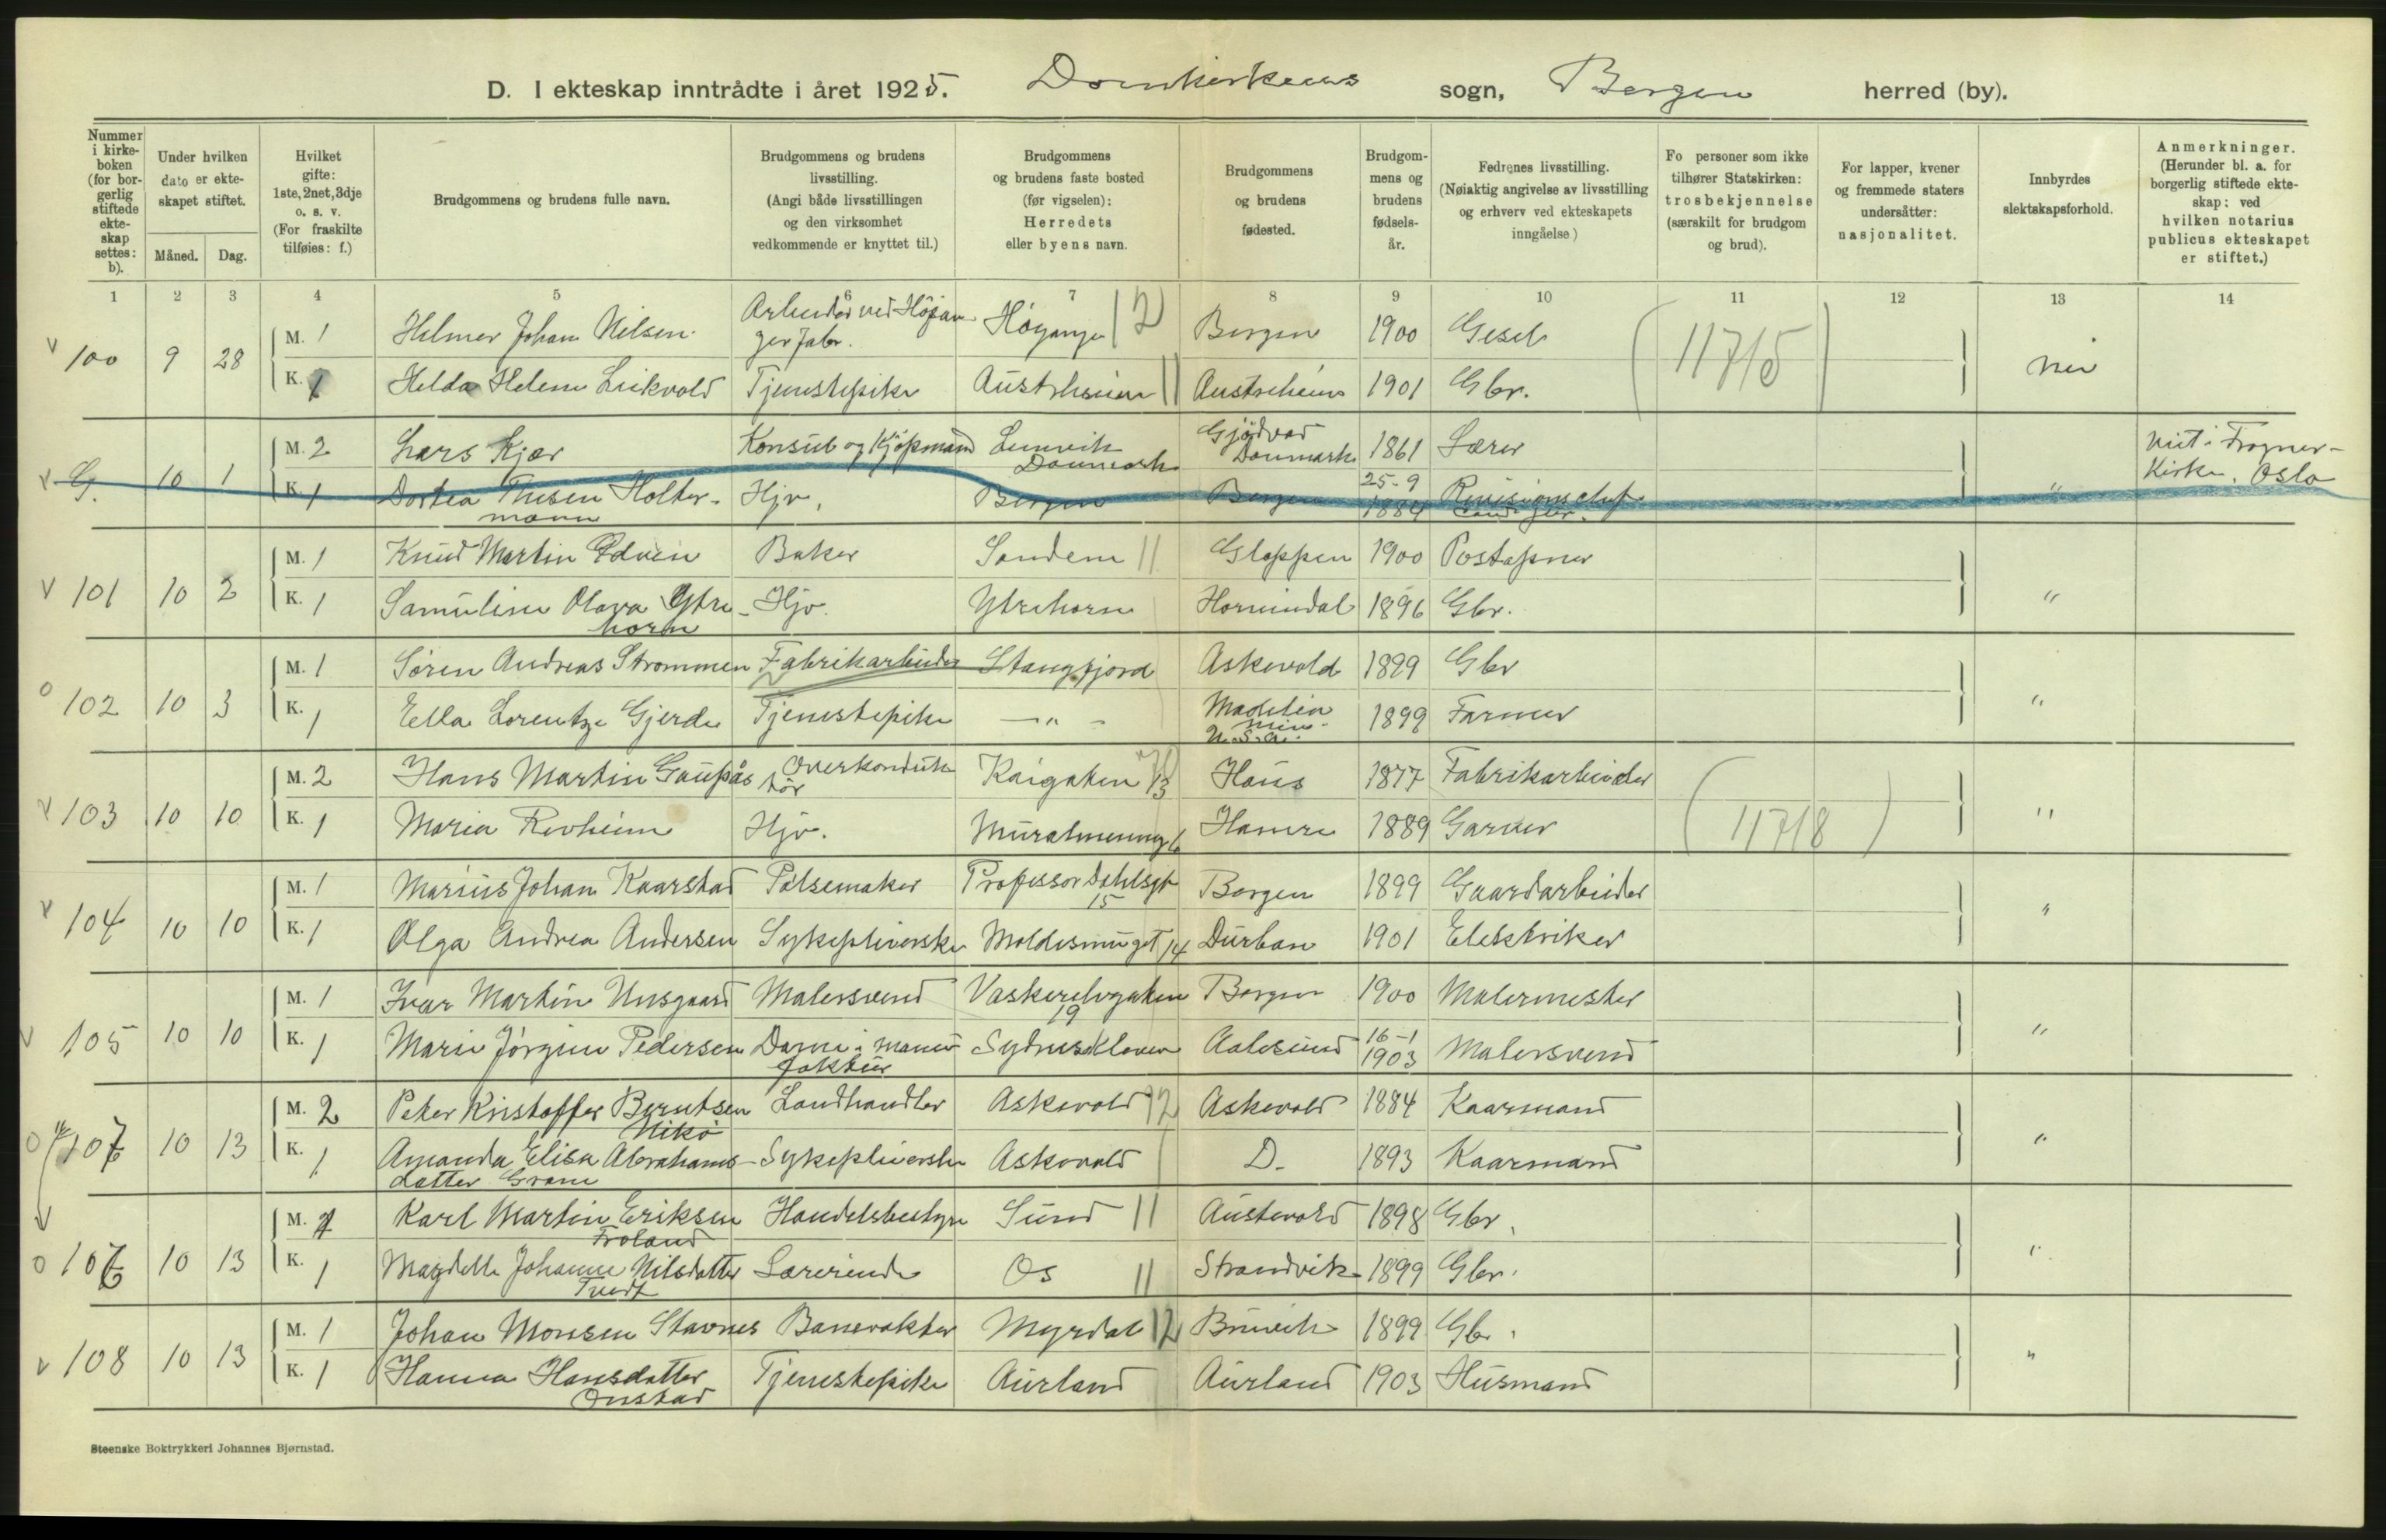 D. I ekteskap inntrådte i året 1925. Domkirkens sogn, Bergen herred (by).
Nummer i kirke-boken (for bor-gerlig stiftede ekte-skap settes: b).
Under hvilken dato er ekte-skapet stiftet.
Måned. Dag.
Hvilket gifte: 1ste, 2net, 3dje o. s. v. (For fraskilte tilføies: f.)
Brudgommens og brudens fulle navn.
Brudgommens og brudens livsstilling. (Angi både livsstillingen og den virksomhet vedkommende er knyttet til.)
Brudgommens og brudens faste bosted (før vigselen): Herredets eller byens navn.
Brudgommens og brudens fødested.
Brudgom-mens og brudens fødsels-år.
Fedrenes livsstilling. (Nøiaktig angivelse av livsstilling og erhverv ved ekteskapets inngåelse)
Fo personer som ikke tilhører Statskirken: trosbekjennelse (særskilt for brudgom og brud).
For lapper, kvener og fremmede staters undersåtter: nasjonalitet.
Innbyrdes slektskapsforhold.
Anmerkninger. (Herunder bl. a. for borgerlig stiftede ekte-skap: ved hvilken notarius publicus ekteskapet er stiftet.)
1 2 3 4 5 6 7 8 9 10 11 12 13 14
v 100 9 28 M. 1 Helmer Johan Nilsen Arbeider ved Höjan-ger fabr. Höyanger 12 Bergen 1900 Gesel (11715) nei
K. 1 Helda Helene Leikvold Tjenestepike Austrheim 11 Austreheim 1901 Gbr.
v G. 10 1 M. 2 Lars Kjær Konsul og Kjöpmand Lemvik Danmark Gjödvad Danmark 1861 Lærer " viet i Frogner-Kirke, Oslo
K. 1 Dortea Thesen Holter-mann Hjv. Bergen Bergen 25-9 1884 Revisionschef
v 101 10 2 M. 1 Knud Martin Edvin Baker Sandene 11 Gloppen 1900 Postaapner "
K. 1 Samuline Olava Ytre-horn Hjv. Ytrehorn Hornindal 1896 Gbr.
o 102 10 3 M. 1 Sören Andreas Strommen Fabrikarbeider Stangfjord Askevold 1899 Gbr "
K. 1 Ella Lorentze Gjerde Tjenestepike —"— Madelia Min. U.S.A. 1899 Farmer
v 103 10 10 M. 2 Hans Martin Gaupås Overkonduk-tör Kaigaten 13 Haus 1877 Fabrikarbeider (11718) "
K. 1 Maria Revheim Hjv. Muralmenning 6 Hamre 1889 Garver
v 104 10 10 M. 1 Marius Johan Kaarstad Pölsemaker Professor Dahlsgt 15 Bergen 1899 Gaardarbeider "
K. 1 Olga Andrea Andersen Sykepleierske Moldesmuget 14 Durban 1901 Elektriker
v 105 10 10 M. 1 Ivar Martin Unsgaard Malersvend Vaskerelvgaten 19 Bergen 1900 Malermester "
K. 1 Marie Jörgine Pedersen Dame i manu-faktur Sydnes Kleven Aalesund 16-1 1903 Malersvend
o 107 10 13 M. 2 Peter Kristoffer Berntsen Nikö Landhandler Askevold 12 Askevold 1884 Kaarmand "
K. 1 Amanda Elisa Abrahams-datter Grane Sykepleierske Askevold D. 1893 Kaarmand
o 106 10 13 M. 1 Karl Martin Eriksen Froland Handelsbestyrer Sund 11 Austevold 1898 Gbr. "
K. 1 Magdelle Johanne Nilsdatter Tvedt Lærerinde Os 11 Strandvik 1899 Gbr.
v 108 10 13 M. 1 Johan Monsen Stavnes Banevokter Myrdal 12 Bruvik 1899 Gbr. "
K. 1 Hanna Hansdatter Onstad Tjenestepike Aurland Aurland 1903 Husmand
Steenske Boktrykkeri Johannes Bjørnstad.